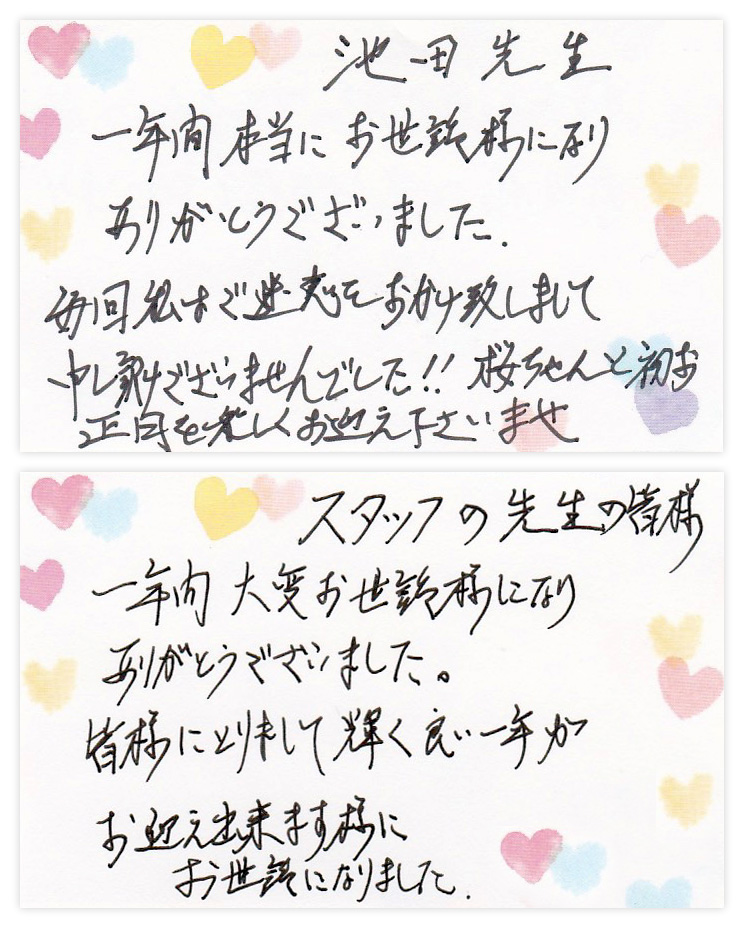 池田先生
一年間本当にお世話様になり
ありがとうございました.
毎回私はご迷惑をおかけ致しまして
申し訳けございませんでした!! 桜ちゃんと初お
正月を楽しくお迎え下さいませ
スタッフの先生の皆様
一年間大変お世話様になり
ありがとうございました。
皆様にとりまして輝く良い一年が
お迎え出来ます様に
お世話になりました.